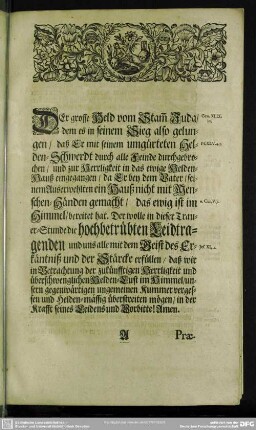 DEr grosse Held vom Stam̃ Juda/
dem es in seinem Sieg also gelun-
gen/ daß Er mit seinem umgürteten Hel-
den-Schwerdt durch alle Feinde durchgebro-
chen/ und zur Herrligkeit in das ewige Helden-
Hauß eingegangen/ da Er bey dem Vater/ sei-
nem Außerwehlten ein Hauß nicht mit Men-
schen-Händen gemacht/ das ewig ist im
Himmel/ bereitet hat. Der wolle in dieser Trau-
er-Stunde die hochbetrübten Leidtra-
genden und uns alle mit dem Geist des Er-
käntniß und der Stärcke erfüllen/ daß wir
in Betrachtung der zukünfftigen Herrligkeit und
überschwenglichen Helden-Lust im Himmel/ un-
sern gegenwärtigen ungemeinen Kummer verges-
sen und Helden-mässig überstreiten mögen/ in der
Krafft seines Leidens und Vorbitte! Amen.
A Præ-